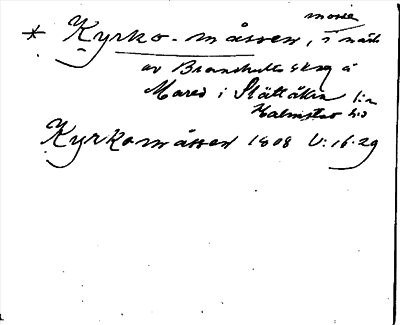 * Kyrko-måssen, mosse i
av Branshults skog å
Mared i Slättåkra sn
Halmstad hd
Kyrkomåssen 1808 U:16.29